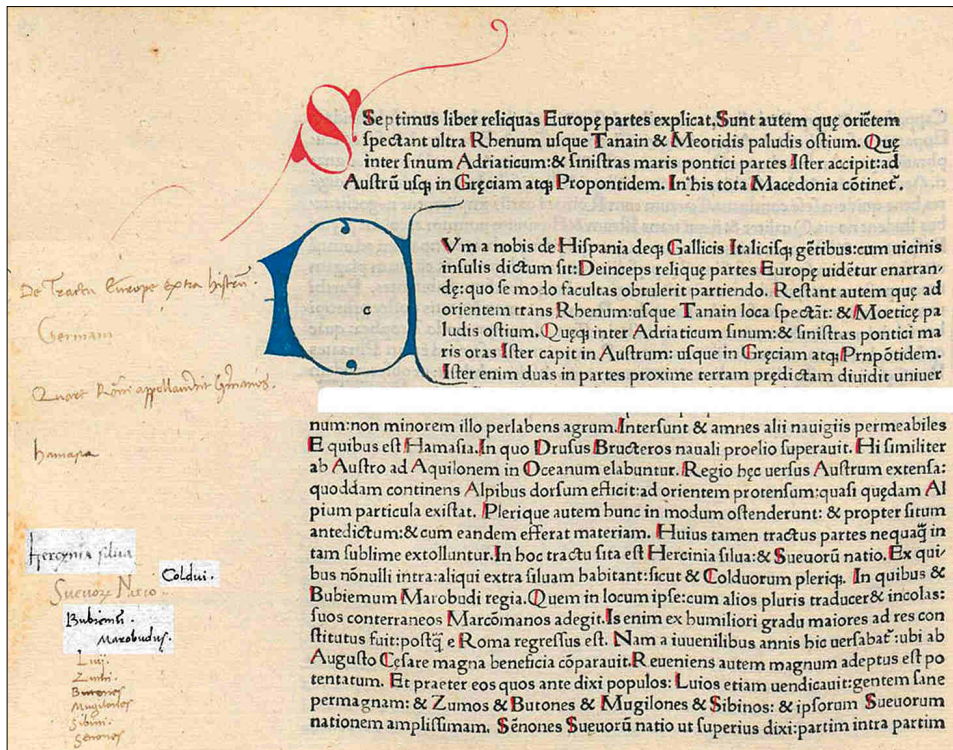 Septimus liber reliquas Europę partes explicat, Sunt autem quę oriẽtem
spectant ultra Rhenum usque Tanain & Meotidis paludis ostium. Quę
inter sinum Adriaticum: & sinistras maris pontici partes Ister accipit: ad
Austrũ usq; in Gręciam atq; Propontidem. In his tota Macedonia cõtinet᷑.
De Tractu Europe extra histrũ.
Germani
Quare Romani appellaverint Germanos.
hamasia
CVm a nobis de Hispania deq; Gallicis Italicisq; gẽtibus: cum uicinis
insulis dictum sit: Deinceps reliquę partes Europę uidẽtur enarran-
dę: quo se modo facultas obtulerit partiendo. Restant autem quę ad
orientem trans Rhenum: usque Tanain loca spectãt: & Moeticę pa
ludis ostium. Quęq; inter Adriaticum sinum: & sinistras pontici ma
ris oras Ister capit in Austrum: usque in Gręciam atq; Prnpõtidem.
Ister enim duas in partes proxime terram prędictam diuidit uniuer
num: non minorem illo perlabens agrum. Intersunt & amnes alii nauigiis permeabiles
E quibus est Hamasia. In quo Drusus Bructeros nauali proelio superauit. Hi similiter
ab Austro ad Aquilonem in Oceanum elabuntur. Regio hęc uersus Austrum extensa:
quoddam continens Alpibus dorsum efficit: ad orientem protensum: quasi quędam Al
pium particula existat. Plerique autem hunc in modum ostenderunt: & propter situm
antedictum: & cum eandem efferat materiam. Huius tamen tractus partes nequaq̃ in
tam sublime extolluntur. In hoc tractu sita est Hercinia silua: & Sueuorũ natio. Ex qui
bus nõnulli intra: aliqui extra siluam habitant: sicut & Colduorum pleriq;. In quibus &
Bubiemum Marobudi regia. Quem in locum ipse: cum alios pluris traducer& incolas:
suos conterraneos Marcõmanos adegit. Is enim ex humiliori gradu maiores ad res con
stitutus fuit: postq̃ e Roma regressus est. Nam a iuuenilibus annis hic uersabat᷑: ubi ab
Augusto Cęsare magna beneficia cõparauit. Reueniens autem magnum adeptus est po
tentatum. Et praeter eos quos ante dixi populos: Luios etiam uendicauit: gentem sane
permagnam: & Zumos & Butones & Mugilones & Sibinos: & ipsorum Sueuorum
nationem amplissimam. Sẽnones Sueuorũ natio ut superius dixi: partim intra partim
Hercynia silua
Coldui.
Sueuoꝝ Natio
Bubiemũ.
Marobudus.
Luij.
Zumi.
Butones
Mugilones
Sibini.
Senones